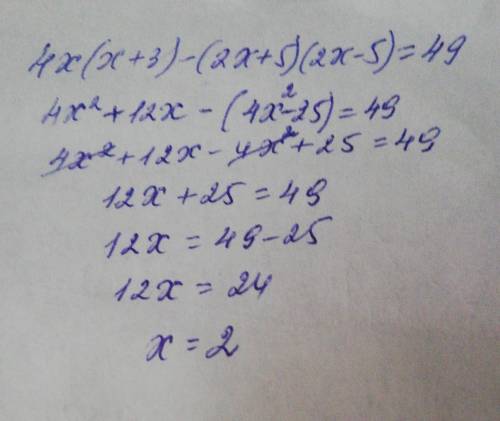 4x(x+3)-(2x+5)(2x-5)=49
4x²+12x-(4x²-25)=49
4x²+12x-4x²+25=49
12x+25=49
12x=49-25
12x=24
x=2